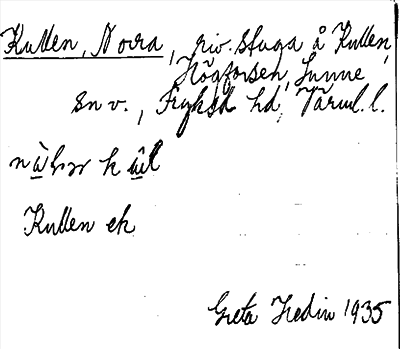 Kullen, Norra, riv. stuga å Kullen,
Högforsen, Sunne
sn v., Fryksd. hd, Värml. l.
Kullen ek
Greta Hedin 1935